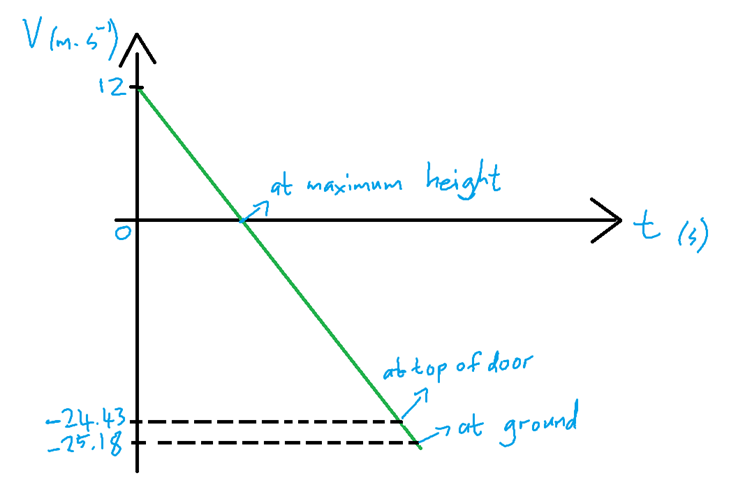 V (m·s⁻¹)
12
at maximum height
0
t (s)
at top of door
-24.43
at ground
-25.18